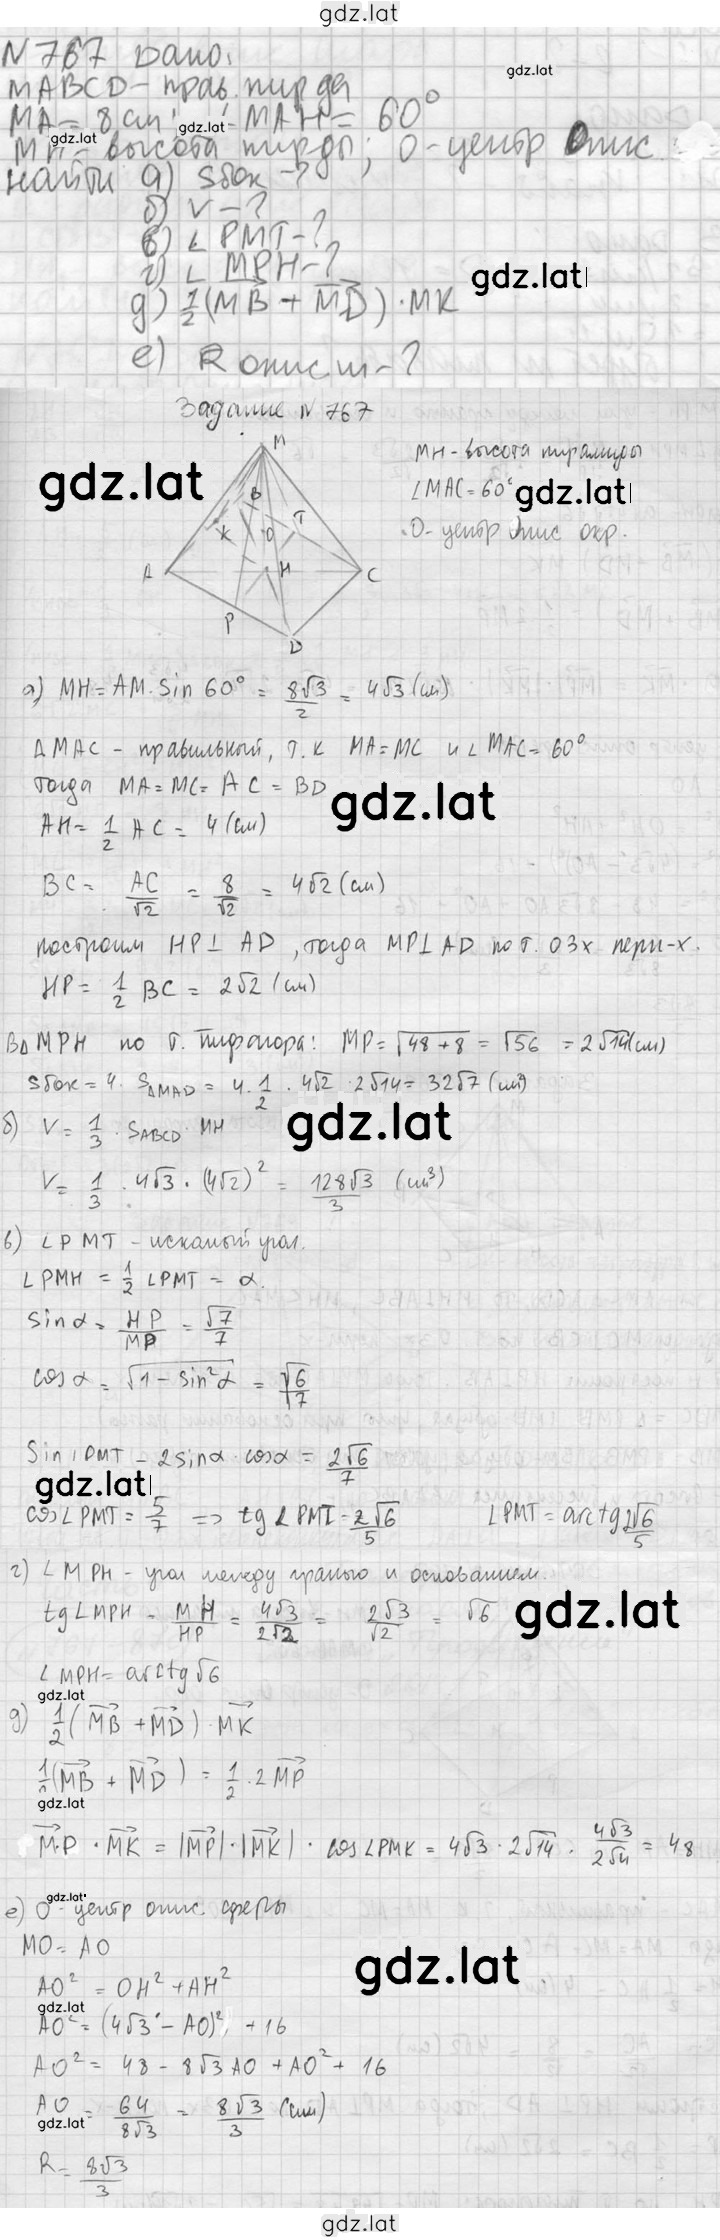 gdz.lat
N 767 Дано:
gdz.lat
MABCD – прав. пирда
MA = 8 см ∠MAH = 60°
gdz.lat gdz.lat
MH – высота пирды; O – центр Опис.
Найти а) Sбок – ?
б) V – ?
в) ∠ PMT – ?
г) ∠ MPH – ?
gdz.lat
д) 1/2 (MB + MD) · MK
е) R описш – ?
Задание N 767
M
MH – высота пирамиды
gdz.lat
∠MAC = 60°
gdz.lat
B
K O T
O – центр Опис окр.
A H C
P
D
а) MH = AM · Sin 60° = 8√3/2 = 4√3 (см)
ΔMAC – правильный, т.к MA = MC и ∠ MAC = 60°
тогда MA = MC = AC = BD
gdz.lat
AH = 1/2 AC = 4 (см)
BC = AC/√2 = 8/√2 = 4√2 (см)
построим HP ⊥ AD, тогда MP ⊥ AD по т. О 3х перп-х.
HP = 1/2 BC = 2√2 (см)
В Δ MPH по т. Пифагора: MP = √48 + 8 = √56 = 2√14 (см)
Sбок = 4 · SΔMAD = 4 · 1/2 · 4√2 · 2√14 = 32√7 (см²)
gdz.lat
б) V = 1/3 · SABCD MH
V = 1/3 · 4√3 · (4√2)² = 128√3/3 (см³)
в) ∠PMT – искомый угол.
∠PMH = 1/2 ∠PMT = α.
sin α = HP/MP = √7/7
cos α = √1 – sin²α = √6/√7
Sin ∠PMT – 2 sin α · cos α = 2√6/7
gdz.lat
cos∠PMT = 5/7 => tg ∠PMT = 2√6/5 ∠PMT = arctg 2√6/5
г) ∠MPH – угол между гранью и основанием.
tg∠MPH – MH/HP = 4√3/2√2 = 2√3/√2 = √6
gdz.lat
∠MPH = arctg √6
gdz.lat
д) 1/2 (MB + MD) · MK
1/2 (MB + MD) = 1/2 · 2MP
gdz.lat
MP · MK = |MP| · |MK| · cos∠PMK = 4√3 · 2√14 · 4√3/2√14 = 48
gdz.lat
е) O – центр опис. сферы
MO = AO
gdz.lat
AO² = OH² + AH²
gdz.lat
AO² = (4√3 – AO)² + 16
AO² = 48 – 8√3 AO + AO² + 16
AO = 64/8√3 = 8√3/3 (см)
gdz.lat
R = 8√3/3
gdz.lat